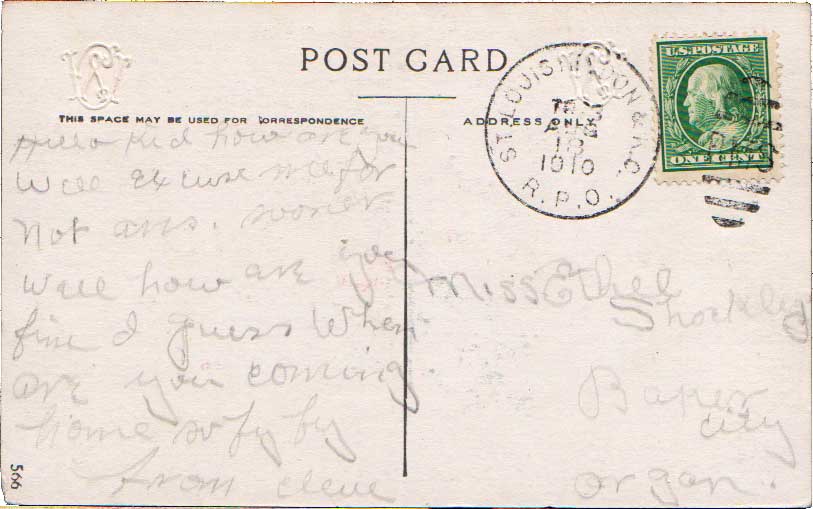 POST CARD
THIS SPACE MAY BE USED FOR CORRESPONDENCE
ADDRESS ONLY
U.S. POSTAGE
ONE CENT
R.P.O.
ST. LOUIS MOON & K.C.
AUG
18
1910
Hello Kid how are you
Well Excuse me for
not ans. sooner
Well how are you
fine I guess When
are you coming
home so by by
from cleve
Miss Ethel
Shockley
Baker
City
organ.
566